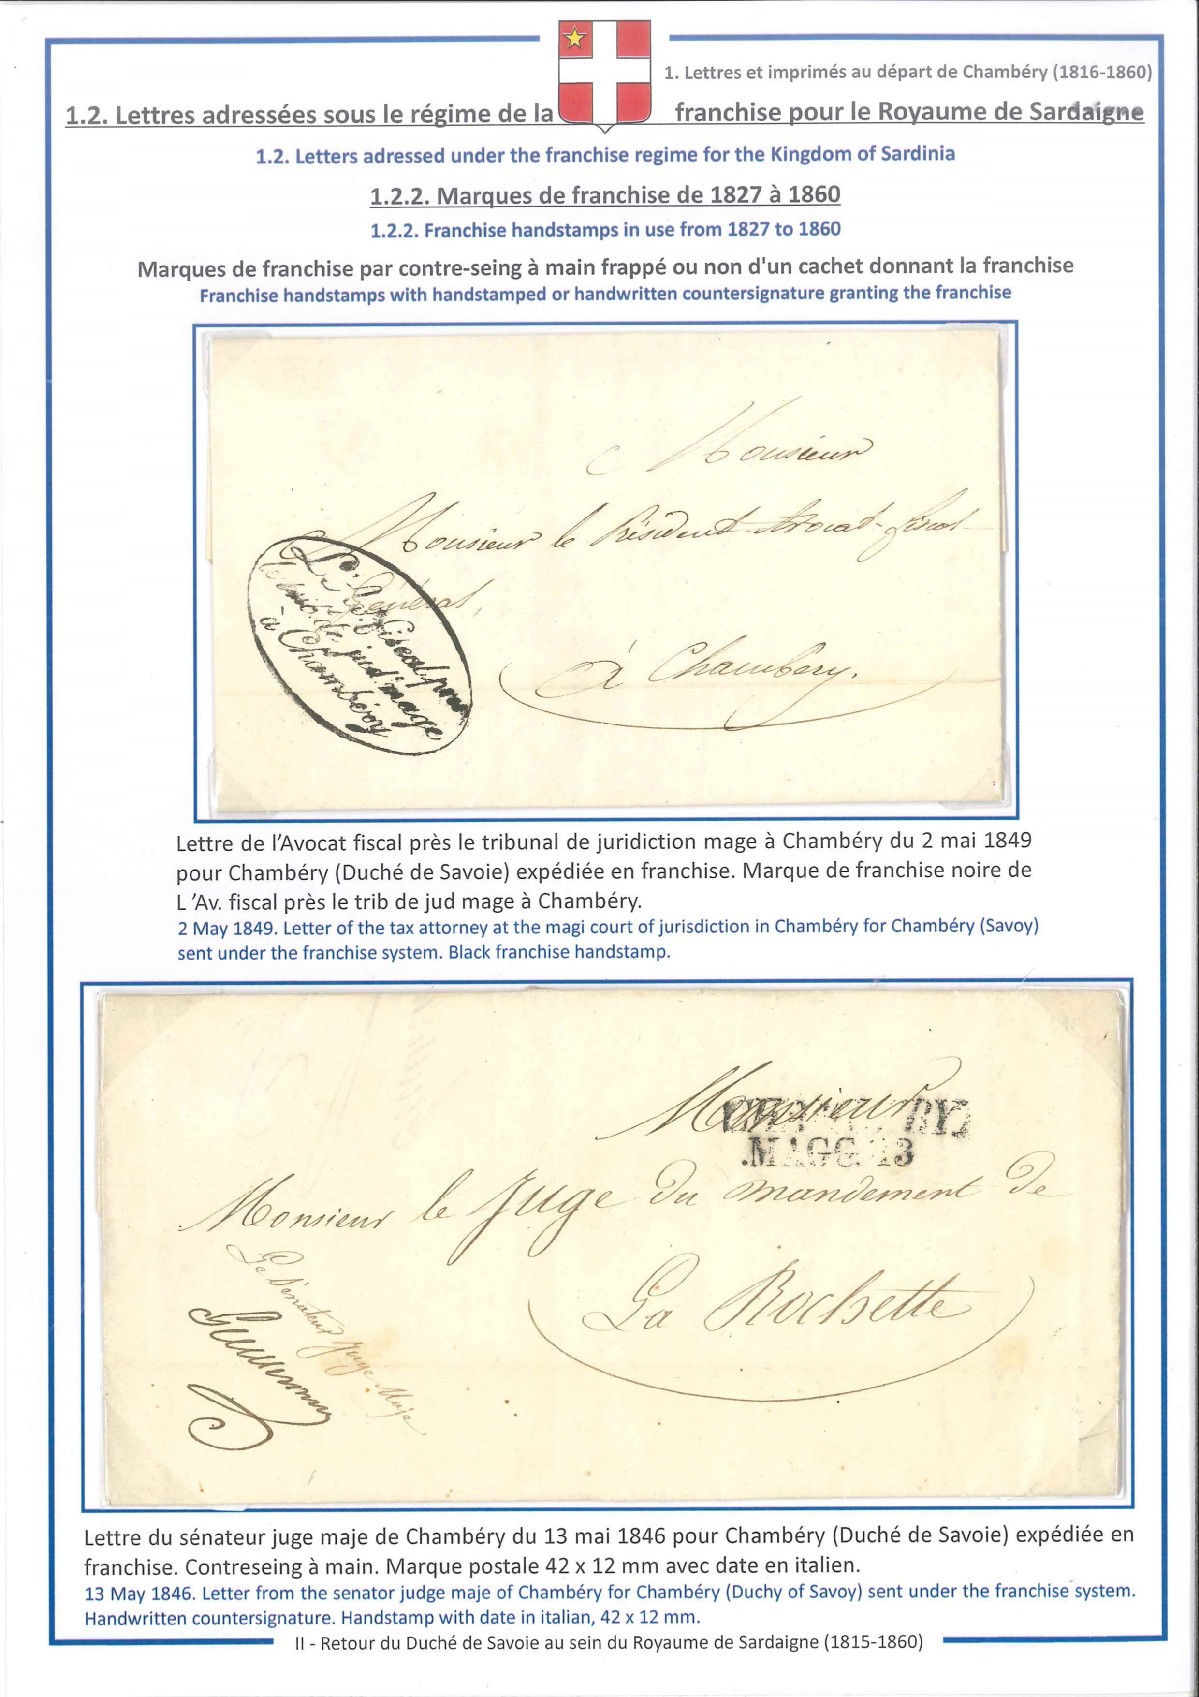 1. Lettres et imprimés au départ de Chambéry (1816-1860)
1.2. Lettres adressées sous le régime de la franchise pour le Royaume de Sardaigne
1.2. Letters adressed under the franchise regime for the Kingdom of Sardinia
1.2.2. Marques de franchise de 1827 à 1860
1.2.2. Franchise handstamps in use from 1827 to 1860
Marques de franchise par contre-seing à main frappé ou non d'un cachet donnant la franchise
Franchise handstamps with handstamped or handwritten countersignature granting the franchise
Monsieur
Monsieur le Président Avocat-fiscal
Général,
à Chambéry.
fiscal près
le trib. de jud mage
à Chambéry
Lettre de l'Avocat fiscal près le tribunal de juridiction mage à Chambéry du 2 mai 1849
pour Chambéry (Duché de Savoie) expédiée en franchise. Marque de franchise noire de
L 'Av. fiscal près le trib de jud mage à Chambéry.
2 May 1849. Letter of the tax attorney at the magi court of jurisdiction in Chambéry for Chambéry (Savoy)
sent under the franchise system. Black franchise handstamp.
Monsieur
.MAGG. 13
Monsieur le Juge du mandement de
La Rochette
Le Sénateur Juge Maje
Lettre du sénateur juge maje de Chambéry du 13 mai 1846 pour Chambéry (Duché de Savoie) expédiée en
franchise. Contreseing à main. Marque postale 42 x 12 mm avec date en italien.
13 May 1846. Letter from the senator judge maje of Chambéry for Chambéry (Duchy of Savoy) sent under the franchise system.
Handwritten countersignature. Handstamp with date in italian, 42 x 12 mm.
II - Retour du Duché de Savoie au sein du Royaume de Sardaigne (1815-1860)